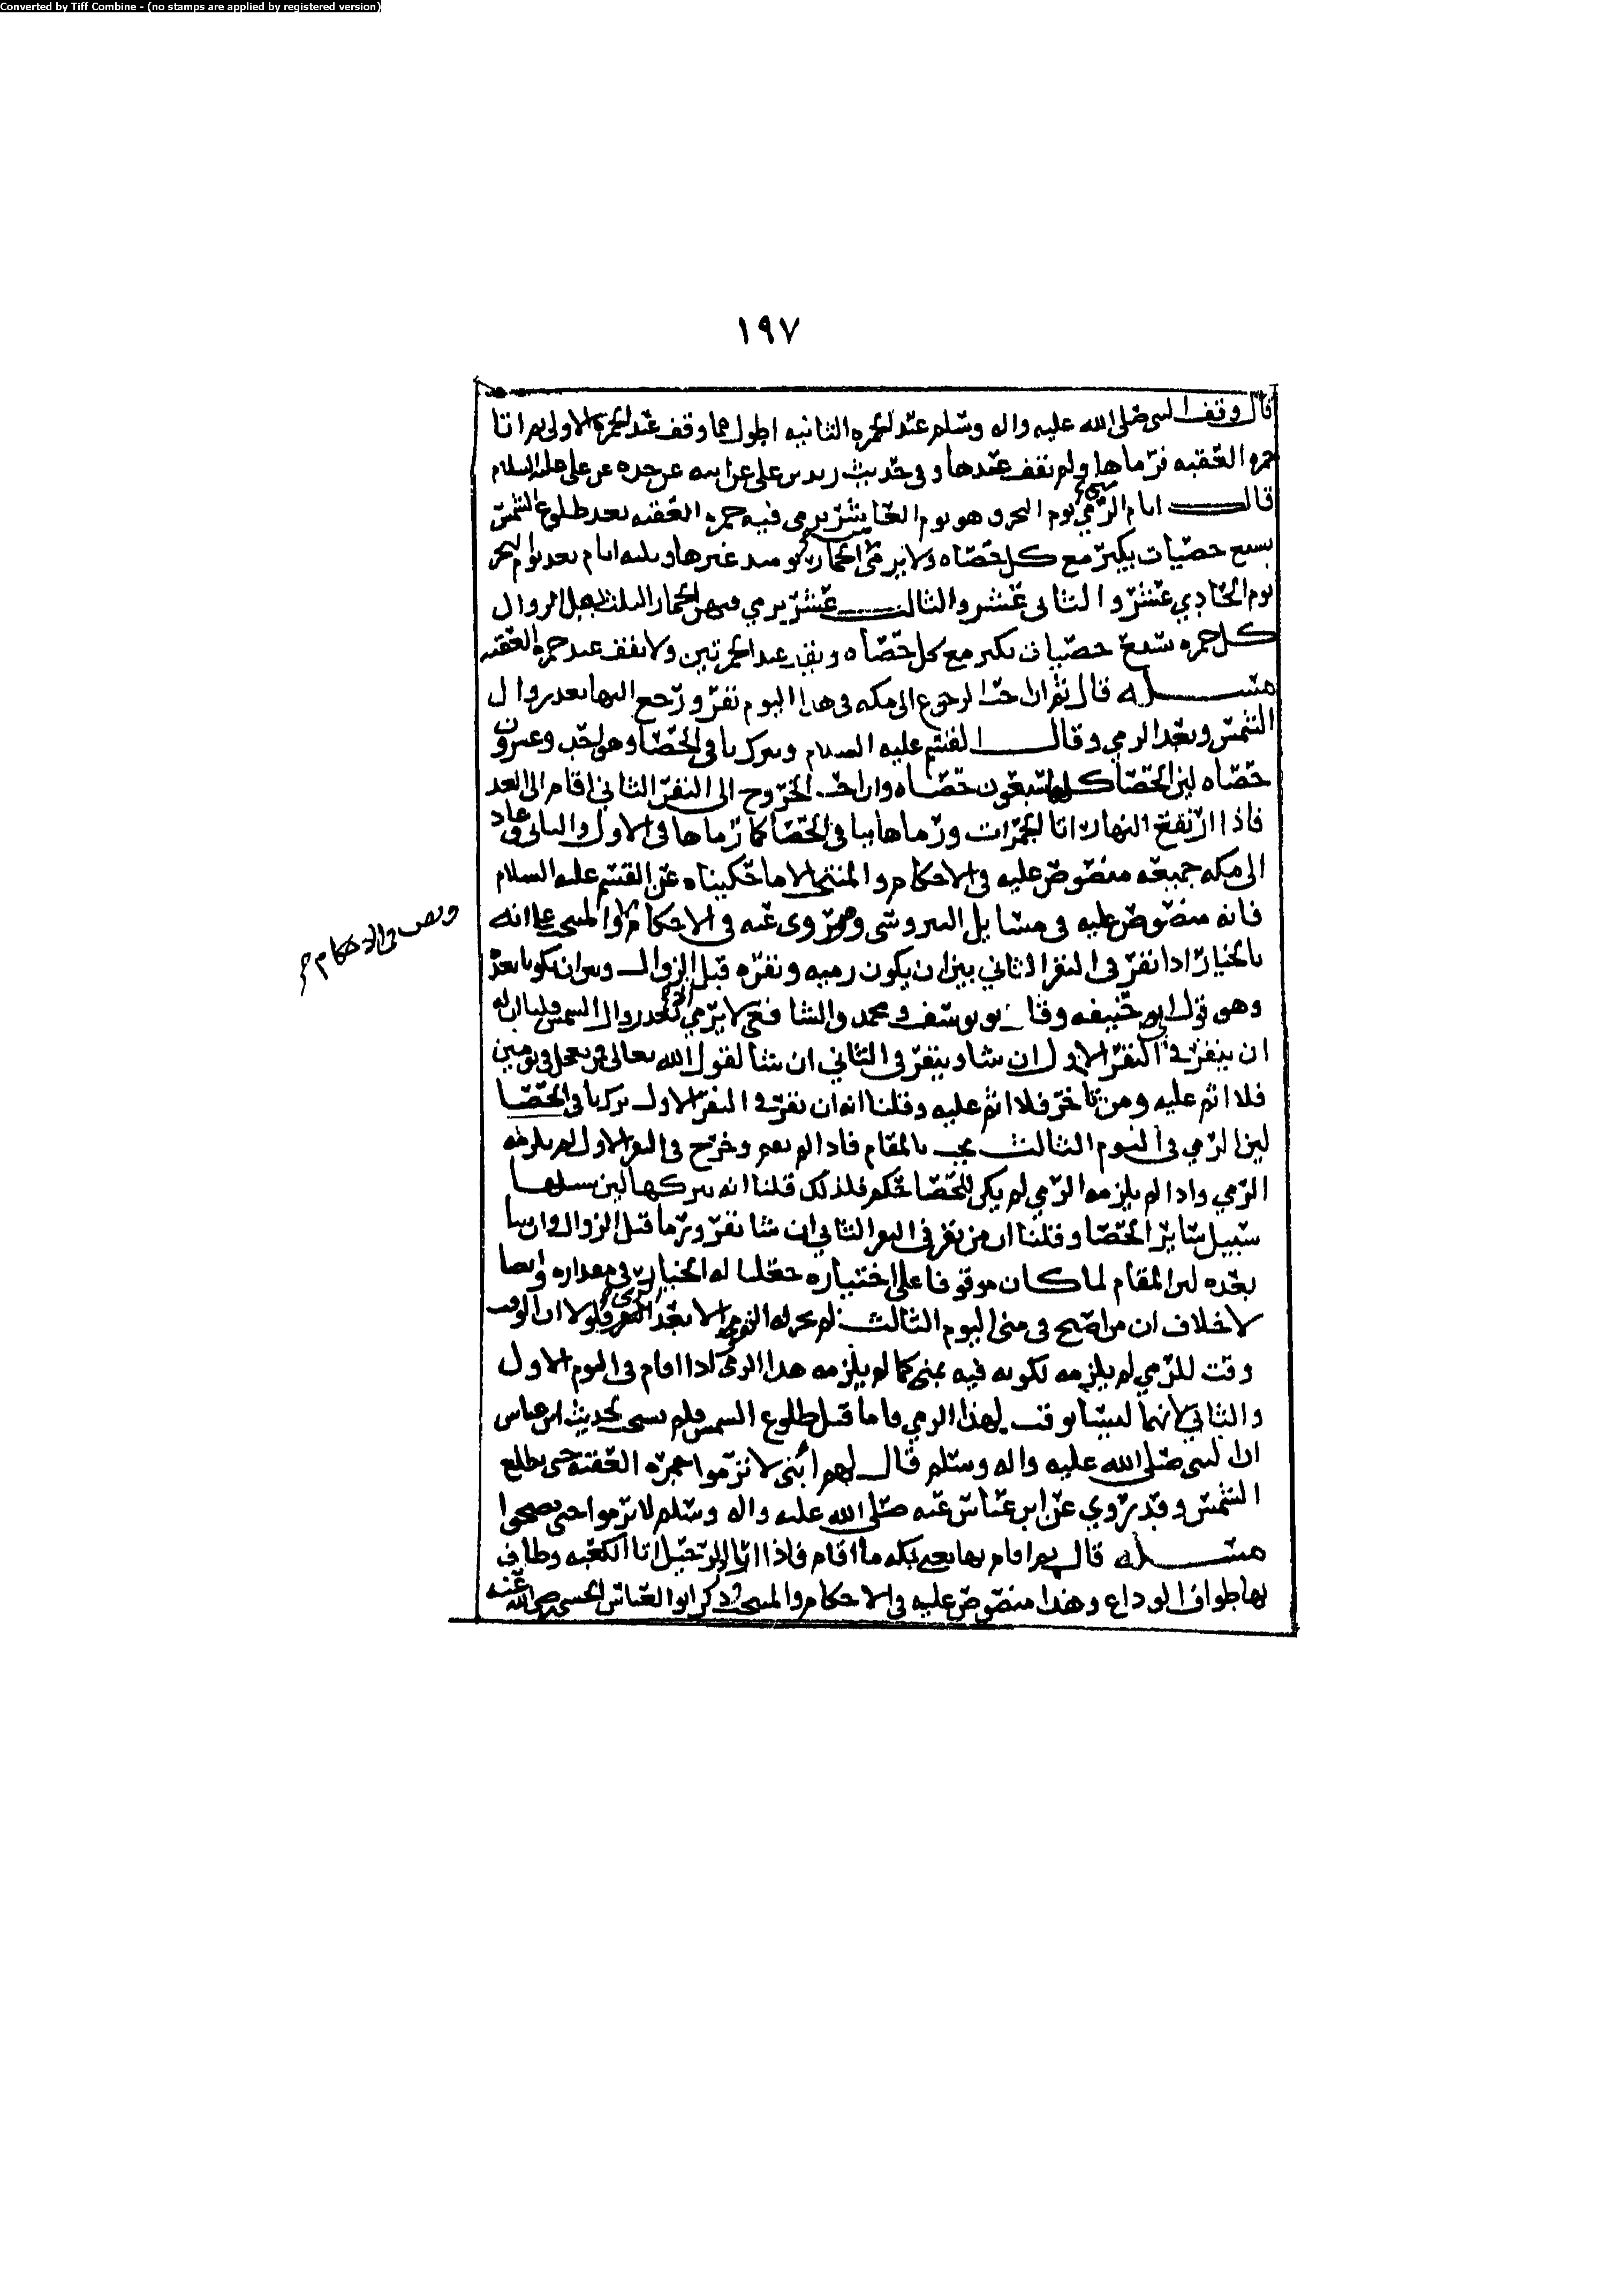 Converted by Tiff Combine - (no stamps are applied by registered version)
١٩٧
قال وقف النبي صلى الله عليه واله وسلم عند الجمرة الثانيه اطول مما وقف عند الجمرة الاولى ثم اتا
جمره العقبه فرماها ولم يقف عندها وفي حديث زيد بن علي عن ابيه عن جده عن علي عليه السلام
قال ايام الرمي يوم النحر وهو يوم العاشر يرمي فيه جمره العقبه بعد طلوع الشمس
بسبع حصيات يكبر مع كل حصاه ولا يرمي الجمار يومئذ غيرها وثلثه ايام بعد يوم النحر
يوم الحادي عشر والثاني عشر والثالث عشر يرمي فيهن الجمار الثلث الزوال
كل جمره بسبع حصيات يكبر مع كل حصاه ويقف عند الجمرتين ولا يقف عند جمره العقبه
مسله قال ثم ان احب الرجوع الى مكه في هذا اليوم نفر ورجع اليها بعد زوال
الشمس وبعد الرمي وقال القسم عليه السلام ويترك باقي الحصا وهي احد وعشرون
حصاه لان الحصا كلها سبعون حصاه وان احب الخروج الى النفر الثاني اقام الى الغد
فاذا ارتفع النهار اتا الجمرات ورماها بباقي الحصا كما رماها في الاول والثاني وعاد
الى مكه جميعه منصوص عليه في الاحكام والمنتخب الا ما حكيناه عن القسم عليه السلام
فانه منصوص عليه في مسايل النيروسي وهو مروي عنه في الاحكام والمنتخب على انه
ونص في الاحكام
بالخيار اذا نفر في النفر الثاني بين ان يكون رميه ونفره قبل الزوال وبين ان يكونا بعده
وهو قول ابي حنيفه وقال ابو يوسف ومحمد والشافعي لا يرمي الا بعد زوال الشمس قلنا ان له
ان ينفر في النفر الاول ان شا وينفر في الثاني ان شا لقول الله تعالى فمن تعجل في يومين
فلا اثم عليه ومن تاخر فلا اثم عليه وقلنا انه ان نفر في النفر الاول ترك باقي الحصا
لان الرمي في اليوم الثالث يجب بالمقام فاذا لم يقم وخرج في النفر الاول لم يلزمه
الرمي واذا لم يلزمه الرمي لم يكن للحصا حكم فلذلك قلنا انه يتركها لان سبيلها
سبيل سائر الحصا وقلنا ان من نفر في النفر الثاني ان شا نفر ورما قبل الزوال وان شا
بعده لان المقام لما كان موقوفا على اختياره جعلنا له الخيار في مقداره وايضا
لا خلاف ان من اصبح في منى اليوم الثالث لم يجز له النفر الا بعد الرمي فلولا ان الوقت
وقت للرمي لم يلزمه لكونه فيه بمنى كما لم يلزمه هذا الرمي اذا اقام في اليوم الاول
والثاني لانهما ليسا بوقت لهذا الرمي فاما قبل طلوع الشمس فلم لحديث ابن عباس
ان النبي صلى الله عليه واله وسلم قال لهم ابني لا ترموا جمرة العقبة حتى تطلع
الشمس وقد روي عن ابن عباس عنه صلى الله عليه واله وسلم لا ترموا حتى تصبحوا
مسله قال ثم اقام بها يعني بمكه ما اقام فاذا اراد الرحيل اتا الكعبه وطاف
بها طواف الوداع وهذا منصوص عليه في الاحكام والمنتخب وذكر ابو العباس الحسني رضي الله عنه